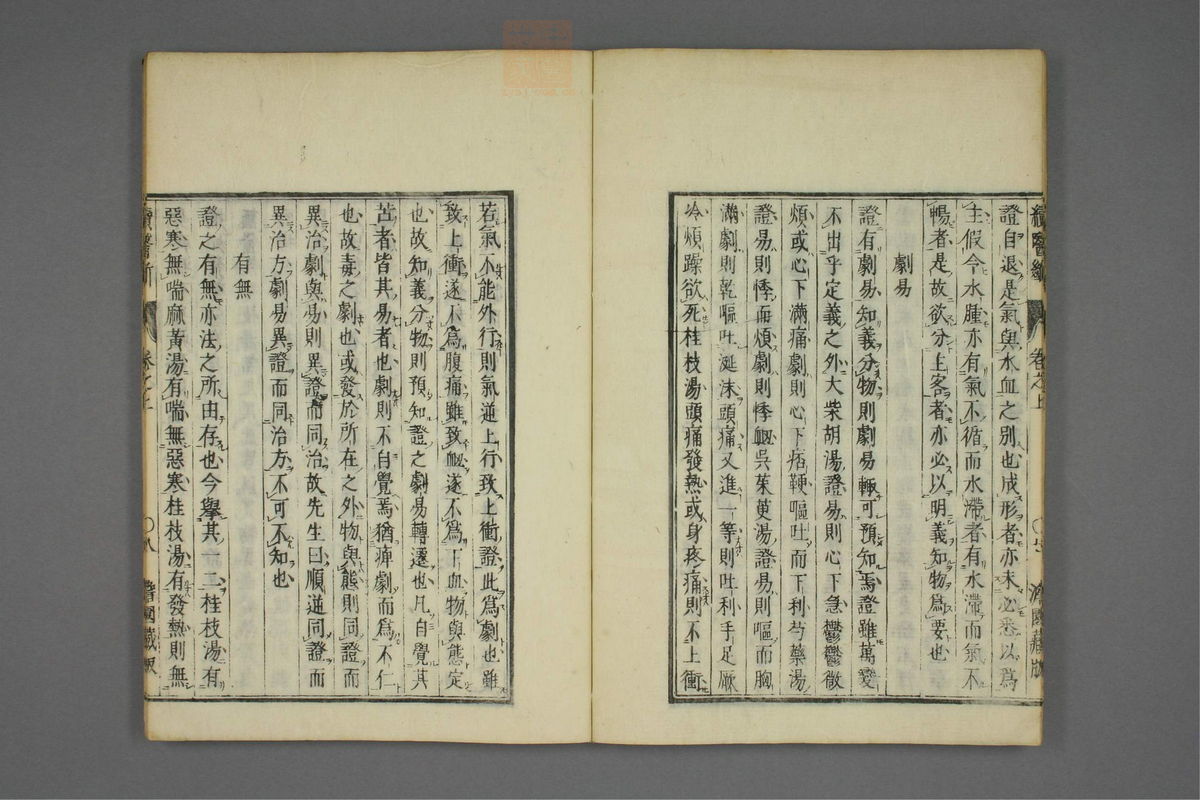 續醫斷 卷之上 〇七 濳國藏版
證自退是氣與水血之別也成形者亦未必悉以爲
主假令水腫亦有氣不循而水滯者有水滯而氣不
暢者是故欲分主客者亦必以明義知物爲要也
劇易
證有劇易知義分物則劇易輙可預知焉證雖萬變
不出乎定義之外大柴胡湯證易則心下急鬱鬱微
煩或心下滿痛劇則心下痞鞕嘔吐而下利芍藥湯
證易則悸而煩劇則悸衂吳茱萸湯證易則嘔而胸
滿劇則乾嘔吐涎沫頭痛又進一等則吐利手足厥
冷煩躁欲死桂枝湯頭痛發熱或身疼痛則不上衝
若氣不能外行則氣逆上行致上衝證此爲劇也雖
致上衝遂不爲腹痛雖致衂遂不爲下血物與態定
也故知義分物則預知證之劇易轉遷也凡自覺其
苦者皆其易者也劇則不自覺焉猶痺劇而爲不仁
也故毒之劇也或發於所在之外物與態則同證而
異治劇與易則異證而同治故先生曰順逆同證而
異治方劇易異證而同治方不可不知也
有無
證之有無亦法之所由存也今擧其一二桂枝湯有
惡寒無喘麻黃湯有喘無惡寒桂枝湯有發熱則無
續醫斷 卷之上 〇八 濳國藏版